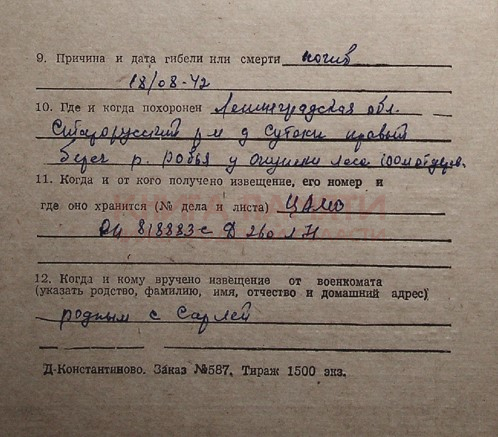 9. Причина и дата гибели или смерти погиб
18/08-42
10. Где и когда похоронен Ленинградская обл.
Старорусский р-н д Сутоки правый
берег р. Ловья у опушки леса 100м от дерев.
11. Когда и от кого получено извещение, его номер и
где оно хранится (№ дела и листа) ЦАМО
оп 818883с Д 260 л Н
12. Когда и кому вручено извещение от военкомата
(указать родство, фамилию, имя, отчество и домашний адрес)
родным с Сарлей
Д-Константиново. Заказ №587. Тираж 1500 экз.